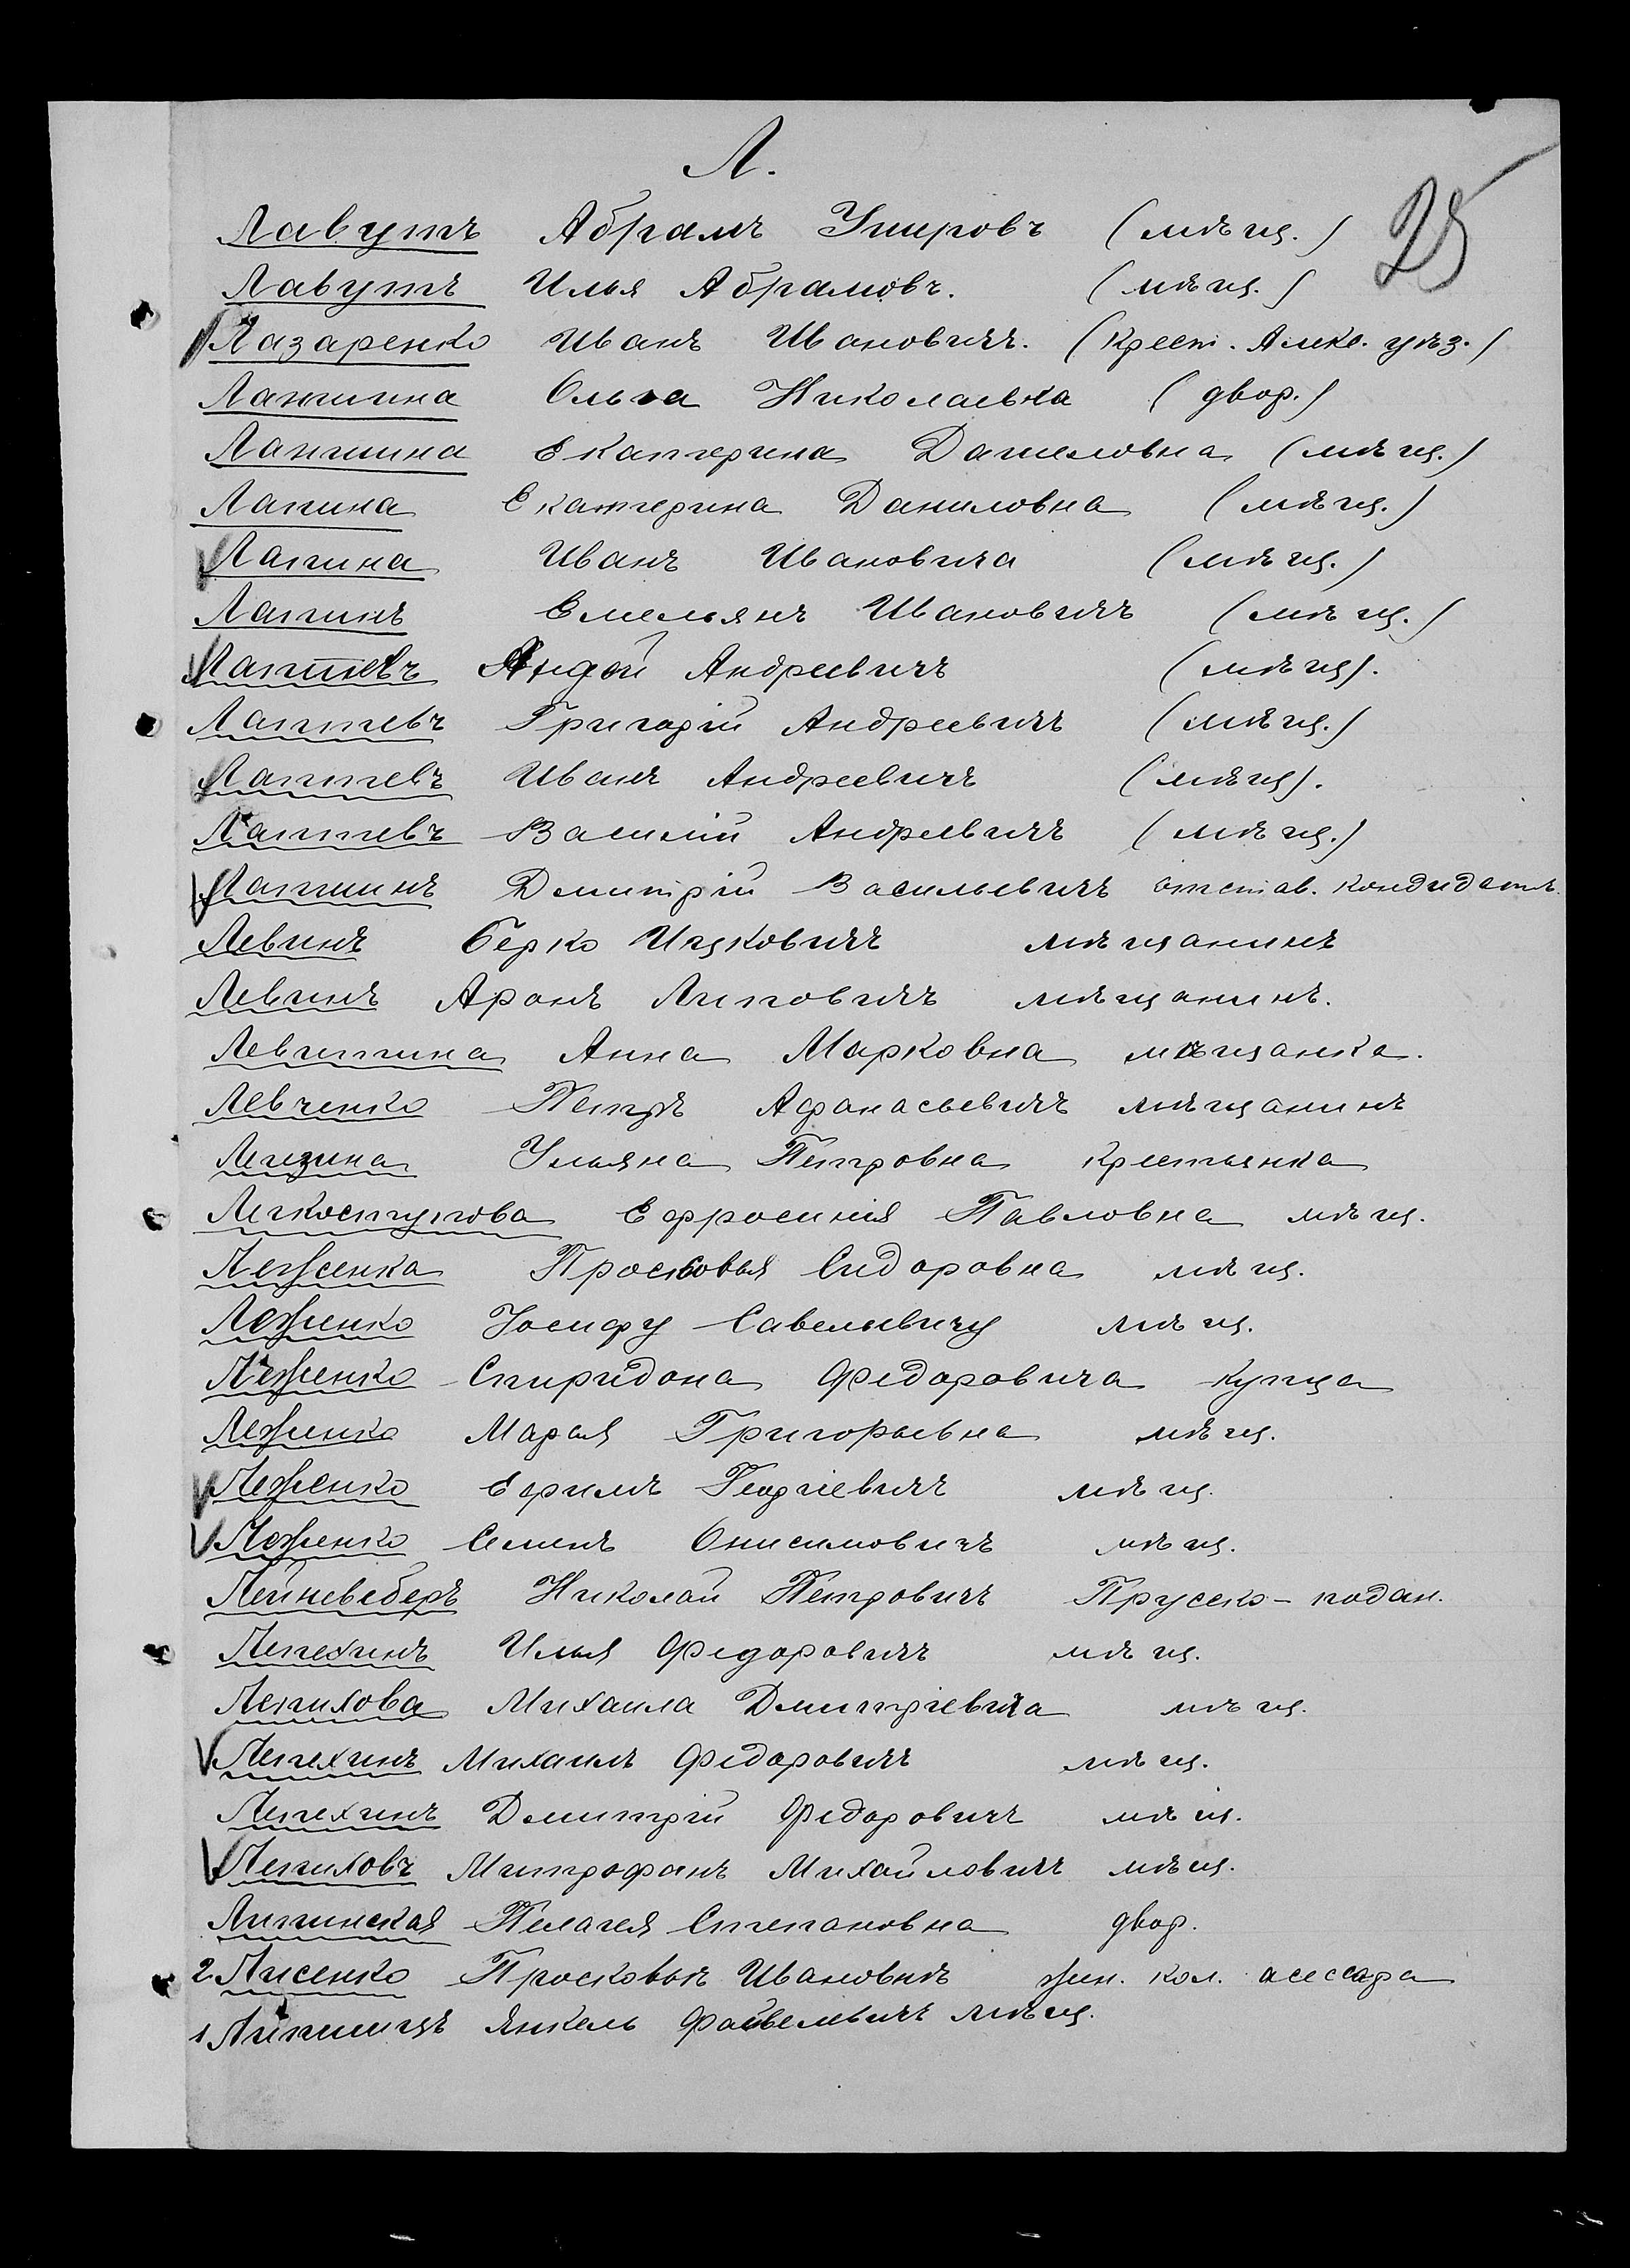 Л.
25
Лавутъ Абрамъ Умеровъ (мѣщ.)
Лавутъ Илья Абрамовъ. (мѣщ.)
Лазаренко Иванъ Ивановичъ. (Крест. Алекс. уѣз.)
Ольга Николаевна (двор.)
Екатерина Даниловна (мѣщ.)
Лапина Екатерина Даниловна (мѣщ.)
Лапина Иванъ Ивановича (мѣщ.)
Лапинъ Емельянъ Ивановичъ (мѣщ.)
Лаптевъ Андрей Андреевичъ (мѣщ).
Лаптевъ Григорій Андреевичъ (мѣщ.)
Лаптевъ Иванъ Андреевичъ (мѣщ).
Лаптевъ Василій Андреевичъ (мѣщ.)
Лапшинъ Дмитрій Васильевичъ отстав. кондидатъ.
Левинъ Берко Ицковичъ мѣщанинъ
Левинъ Аронъ Липовичъ мѣщанинъ.
Левитина Анна Марковна мѣщанка.
Левченко Петръ Афанасьевичъ мѣщанинъ
Легезина Ульяна Петровна крестьянка
Легкоступова Ефросинія Павловна мѣщ.
Леженка Просковья Сидоровна мѣщ.
Леженко Іосифу Савельевичу мѣщ.
Леженко Спиридона Федоровича купца
Леженко Марья Григорьевна мѣщ.
Леженко Ефимъ Георгіевичъ мѣщ.
Леженко Семенъ Онисимовичъ мѣщ.
Лейневеберъ Николай Петровичъ Прусско-подан.
Лепехинъ Илья Федоровичъ мѣщ.
Лепихова Михаила Дмитріевича мѣщ.
Лепехинъ Михаилъ Федоровичъ мѣщ.
Лепехинъ Дмитрій Федоровичъ мѣщ.
Лепиховъ Митрофанъ Михайловичъ мѣщ.
Липинская Пелагея Степановна двор.
2 Лисенко Просковьѣ Ивановнѣ жен. кол. асессора
1 Липшицъ Янкель Файвелевичъ мѣщ.